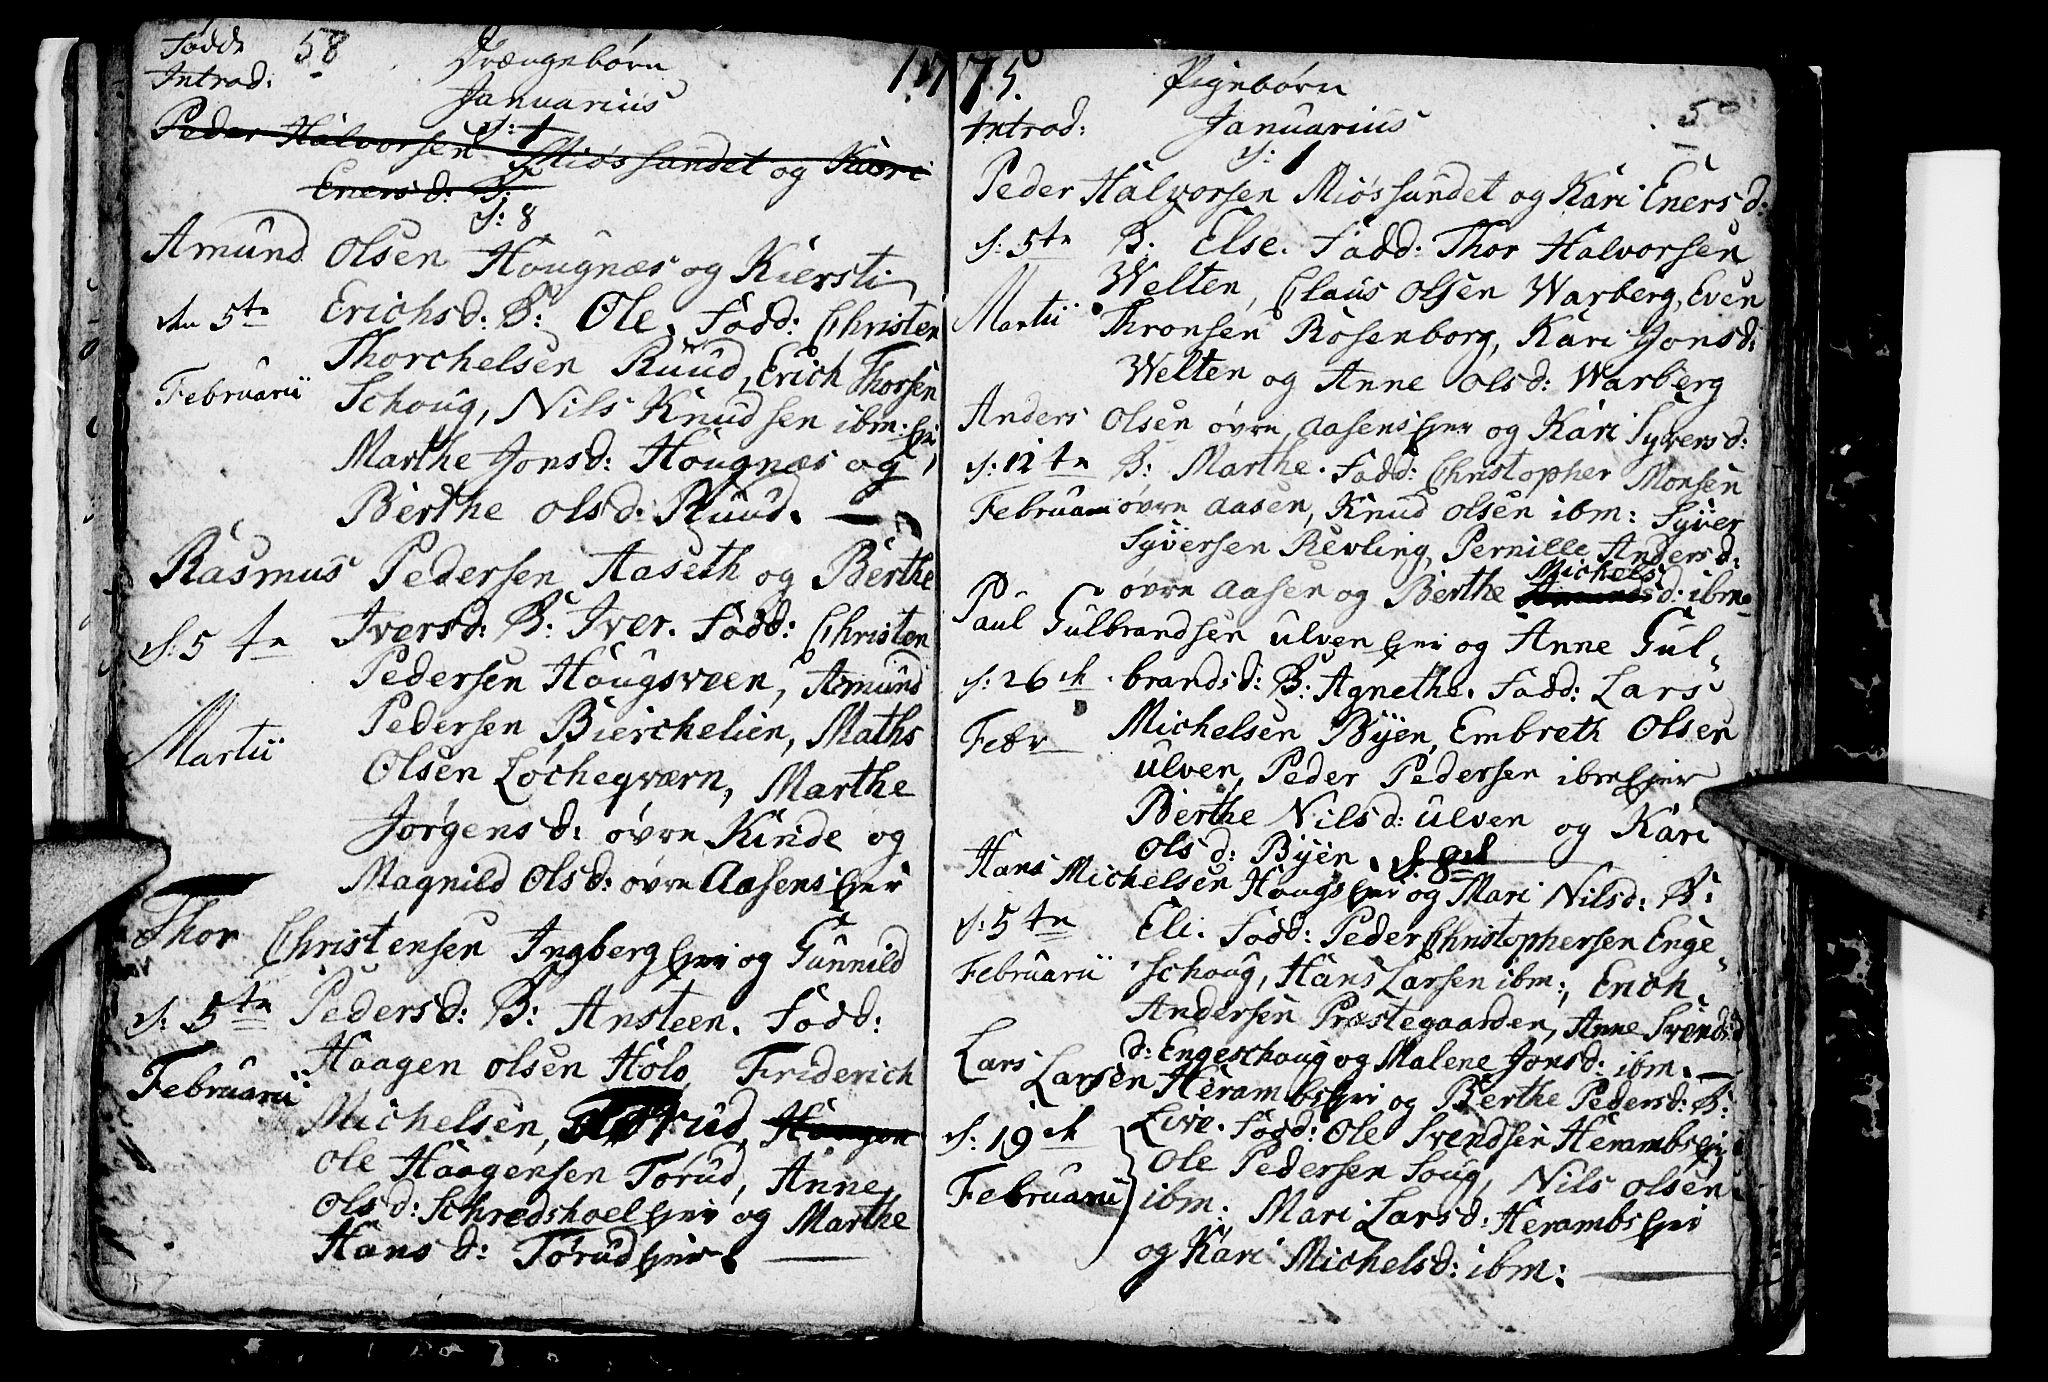 Födde 58 Drængebörn 17
Introd: Januarius
d: 1
Peder Halvorsen Miössundet og Kari
Enersd: B:
d: 8
Amund Olsen Hougnæs og Kiersti
Erichsd: B: Ole. Fadd: Christen
den 5te
Thorchelsen Ruud, Erich Thorsen
Februarii
Schoug, Nils Knudsen ibm:
Marthe Jonsd: Hougnæs og
Berthe Olsd: Ruud.
Rasmus Pedersen Aaseth og Berthe
Iversd: B: Iver. Fadd: Christen
d: 5te
Pedersen Hougsveen, Amund
Pedersen Bierchelien, Maths
Martii
Olsen Löcheqværn, Marthe
Jörgensd: övre Kinde og
Magnild Olsd: övre Aasens Eier
Thor Christensen Ingberg Eier og Gunnild
d: 5te Pedersd: B: Ansteen. Fadd:
Haagen Olsen Holo, Friderich
Februarii
Michelsen, Torud, Haagen
Ole Haagensen Torud, Anne
Olsd: Schredshoel Eier og Marthe
Hansd: Torud Eier.
75. Pigebörn 5
Introd: Januarius
d: 1
Peder Halvorsen Miössundet og Kari Enersd:
d: 5te B. Else. Fadd: Thor Halvorsen
Welten, Claus Olsen Warberg, Even
Martii Thronsen Rosenborg, Kari Jonsd:
Welten og Anne Olsd: Warberg
Anders Olsen övre Aasens Eier og Kari Syversd:
d: 12te B: Marthe. Fadd: Christopher Monsen
Februarii övre Aasen, Knud Olsen ibm: Syver
Syversen Revling, Pernille Andersd:
Michels
övre Aasen og Berthe Amundsd: ibm
Paul Gulbrandsen Ulven Eier og Anne Gul-
d: 26ch brandsd: B: Agnethe. Fadd: Lars
Michelsen Byen, Embreth Olsen
Febr
Ulven, Peder Pedersen ibm Eier
Berthe Nilsd: Ulven og Kari
Olsd: Byen. d: 8de
Hans Michelsen Hougs Eier og Mari Nilsd: B:
d: 5te Eli. Fadd: Peder Christophersen Enge-
Februarii schoug, Hans Larsen ibm:, Erich
Andersen Præstegaarden, Anne Svends
d: Engeschoug og Malene Jonsd: ibm.
Lars Larsen Herambs Eier og Berthe Pedersd: B:
d: 19ch Live. Fadd: Ole Svendsen Herambs Eier
Ole Pedersen Soug, Nils Olsen
Februarii ibm: Mari Larsd: Herambs Eier
og Kari Michelsd: ibm: